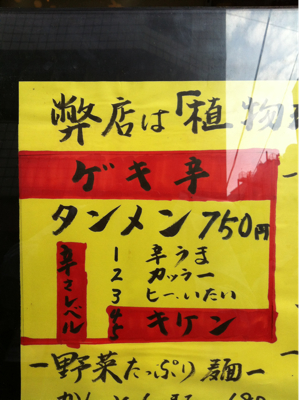 弊店は「植物
ゲキ辛
タンメン 750円
辛さレベル
1 辛うま
2 カッラー
3 ヒー、いたい
45 キケン
ー野菜たっぷり麺ー